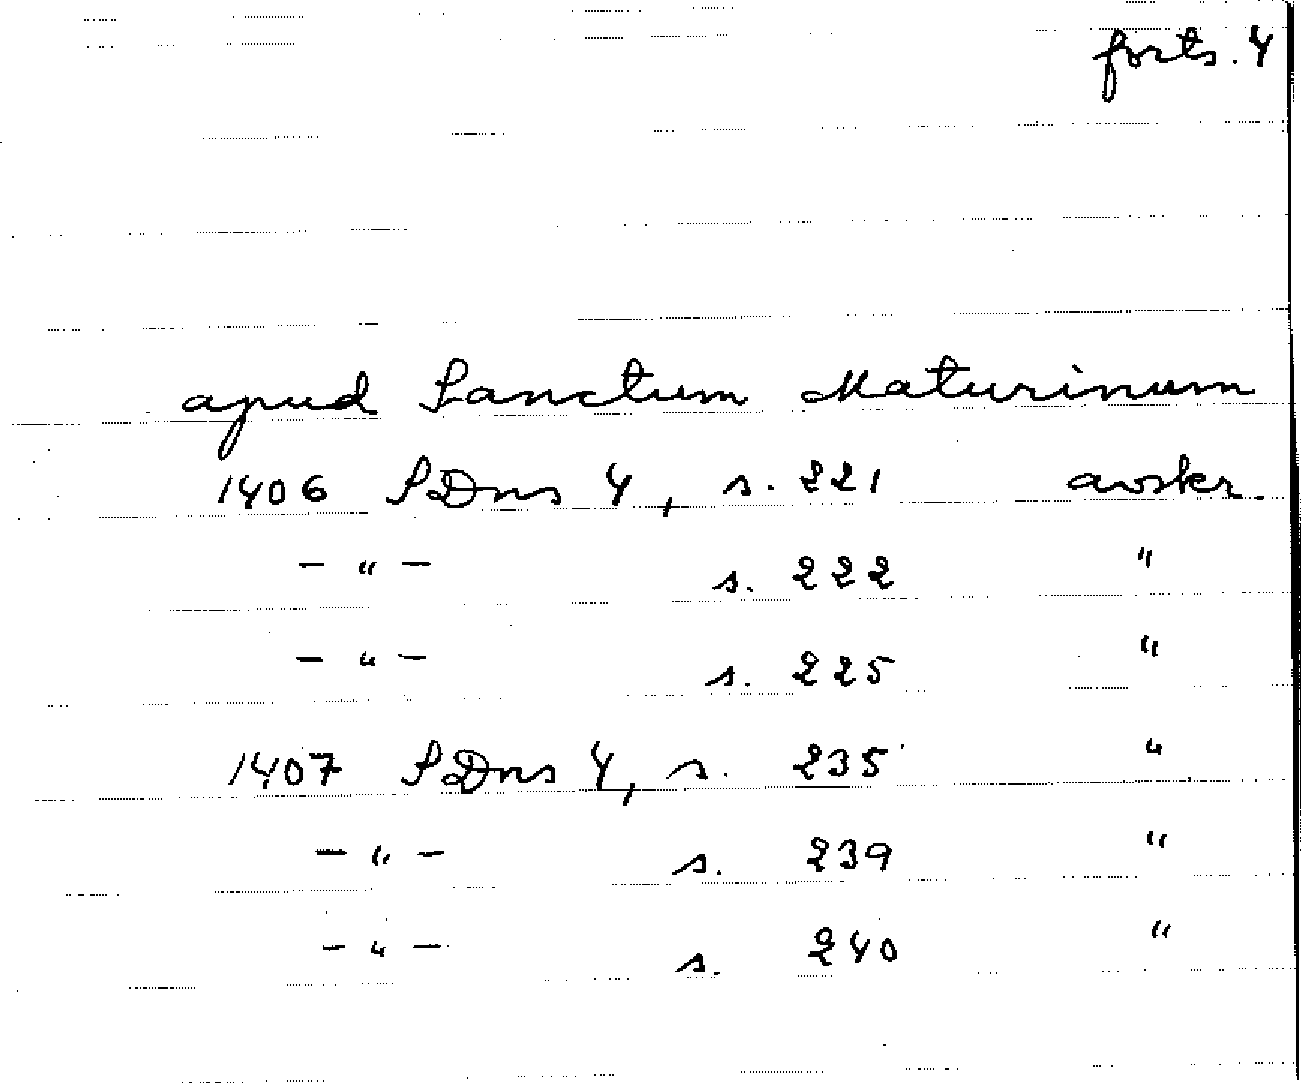 forts. 4
apud Sanctum Maturinum
1406 SDns 4, s. 221 avskr.
- " - s. 222 "
- " - s. 225 "
1407 SDns 4, s. 235 "
- " - s. 239 "
- " - s. 240 "